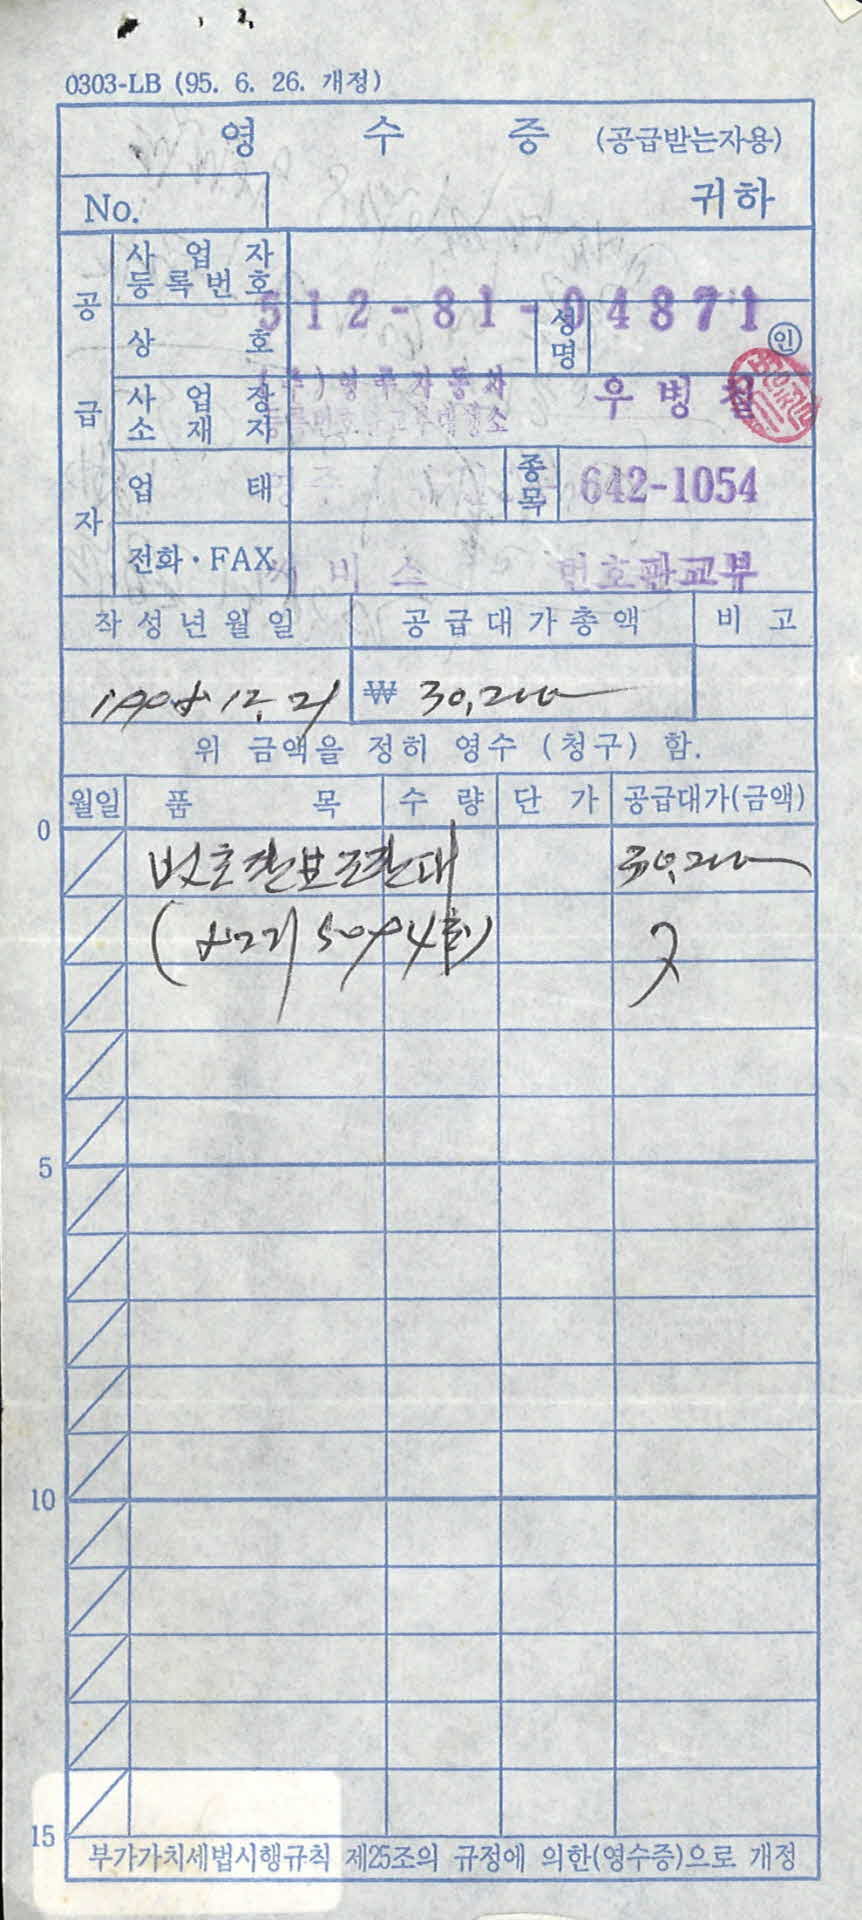 0303-LB (95. 6. 26. 개정)
영 수 증 (공급받는자용)
No. 귀하
공급자
사업자등록번호 512-81-04871
상호 성명 인
(주)영주자동차 우병철
사업장소재지
업태 종목 642-1054
전화·FAX 써비스 번호판교부
작성년월일 공급대가총액 비고
1998 12. 21 ₩ 30,200
위 금액을 정히 영수 (청구) 함.
월일 품목 수량 단가 공급대가(금액)
0
번호판보조판대 30,200
5
10
15
부가가치세법시행규칙 제25조의 규정에 의한(영수증)으로 개정